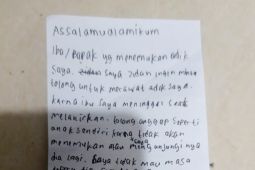 Assalamualamikum
Iba/Bapak yg menemukan adik
saya. saya zidan ingin minta
tolong untuk merawat adik saya.
karna ibu saya meninggal saat
melahirkan. tolong anggap seperti
anak sendiri karna tidak akan
menemukan atau saya mengunjungi nya
dia lagi. saya tidak mau masa